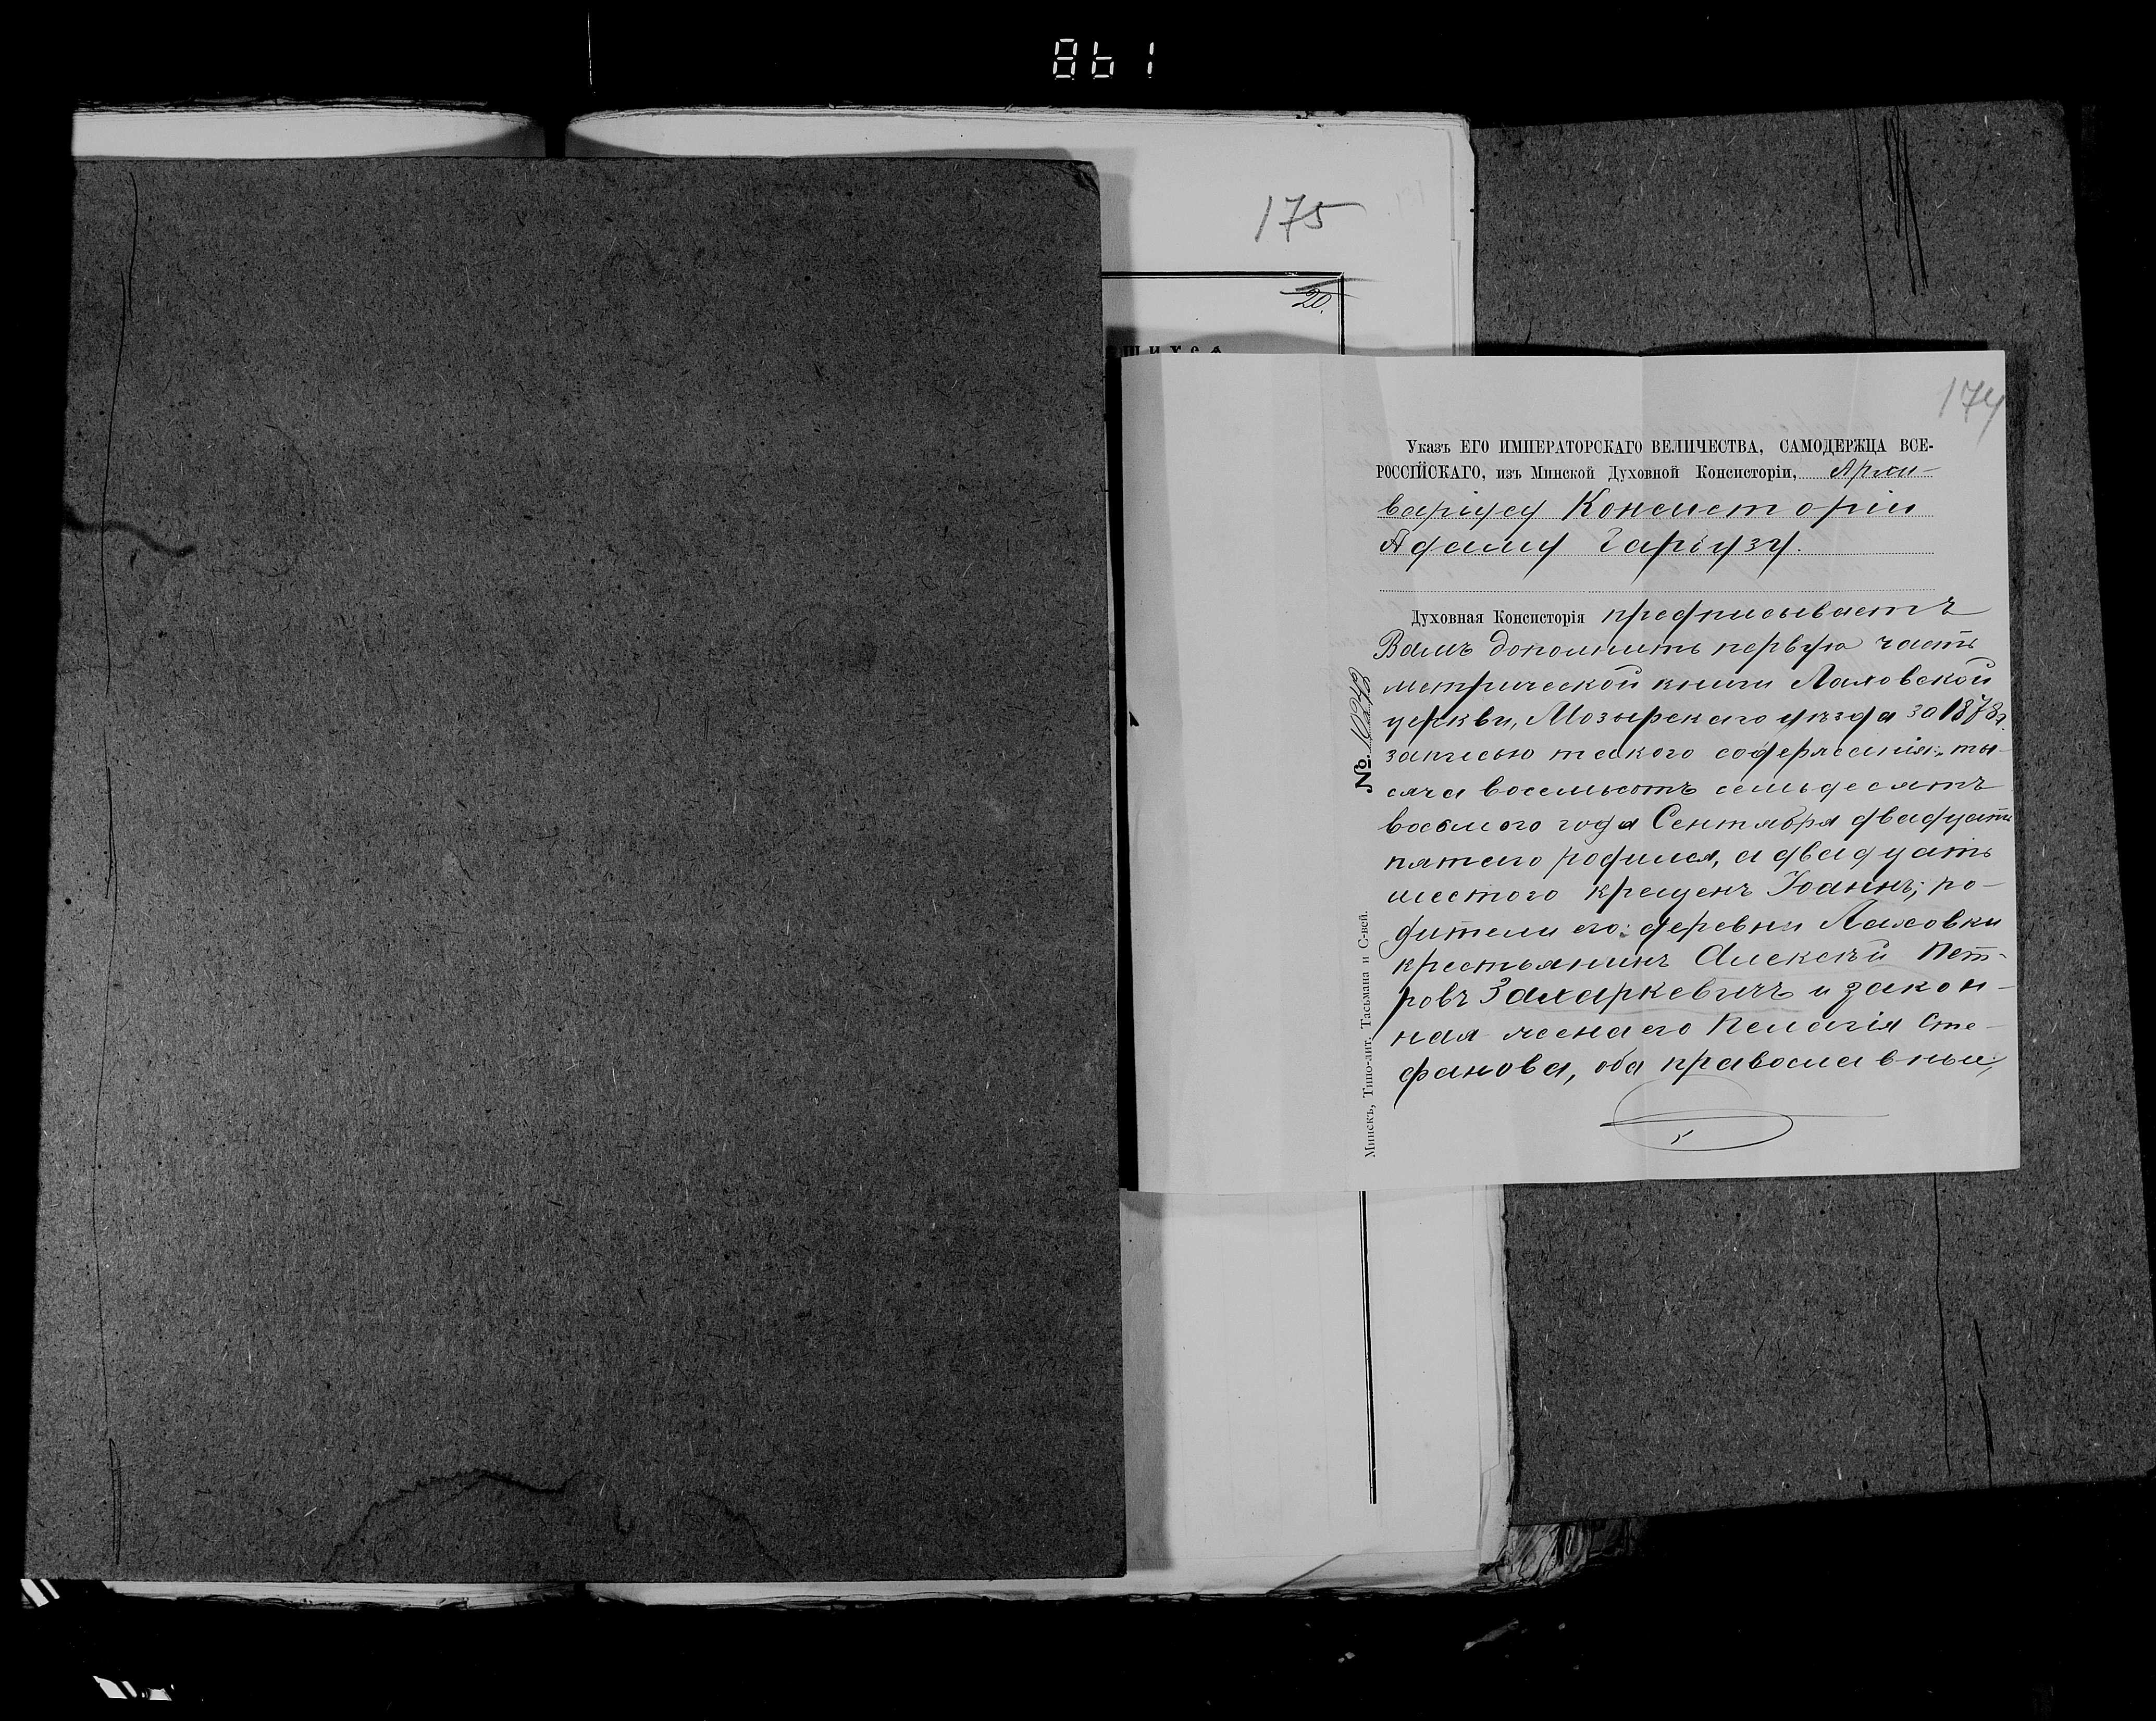 861
175
20.
щихся
174
Указъ ЕГО ИМПЕРАТОРСКАГО ВЕЛИЧЕСТВА, САМОДЕРЖЦА ВСЕ-
РОССІЙСКАГО, изъ Минской Духовной Консисторіи, Архи-
варіусу Консисторіи
Адаму Гаріузу.
Духовная Консисторія предписываетъ
Вамъ дополнить первую часть
метрической книги Лаховской
церкви, Мозырскаго уѣзда за 1878 г.
записью такого содержанія: „ты-
сяча восемьсотъ семьдесятъ
восьмого года Сентября двадцать
пятаго родился, а двадцать
шестого крещенъ Іоаннъ; ро-
дители его: деревни Лаховки
крестьянинъ Алексѣй Пет-
ровъ Захаркевичъ и закон-
ная жена его Пелагія Сте-
фанова, оба православные,
№ 10243
Минскъ, Типо-лит. Тасьмана и С-вей.